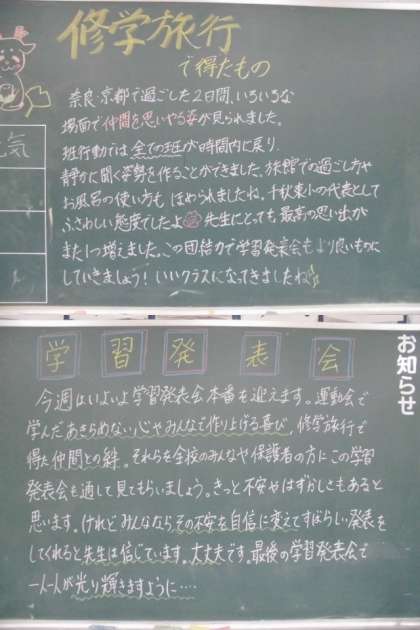 修学旅行
で得たもの
奈良・京都で過ごした2日間、いろいろな
場面で仲間を思いやる姿が見られました。
班行動では全ての班が時間内に戻り、
静かに聞く姿勢を作ることができました。旅館での過ごし方や
お風呂の使い方も ほめられましたね。千秋東小の代表として
ふさわしい態度でしたよ 先生にとっても、最高の思い出が
また1つ増えました。この団結力で学習発表会もより良いものに
していきましょう!いいクラスになってきましたね
気
学習発表会
お知らせ
今週はいよいよ学習発表会本番を迎えます。運動会で
学んだあきらめない心やみんなで作り上げる喜び、修学旅行で
得た仲間との絆。それらを全校のみんなや保護者の方にこの学習
発表会を通して見てもらいましょう。きっと不安やはずかしさもあると
思います。けれどみんなならその不安を自信に変えてすばらしい発表を
してくれると先生は信じています。大丈夫です。最後の学習発表会で
一人一人が光り輝きますように....